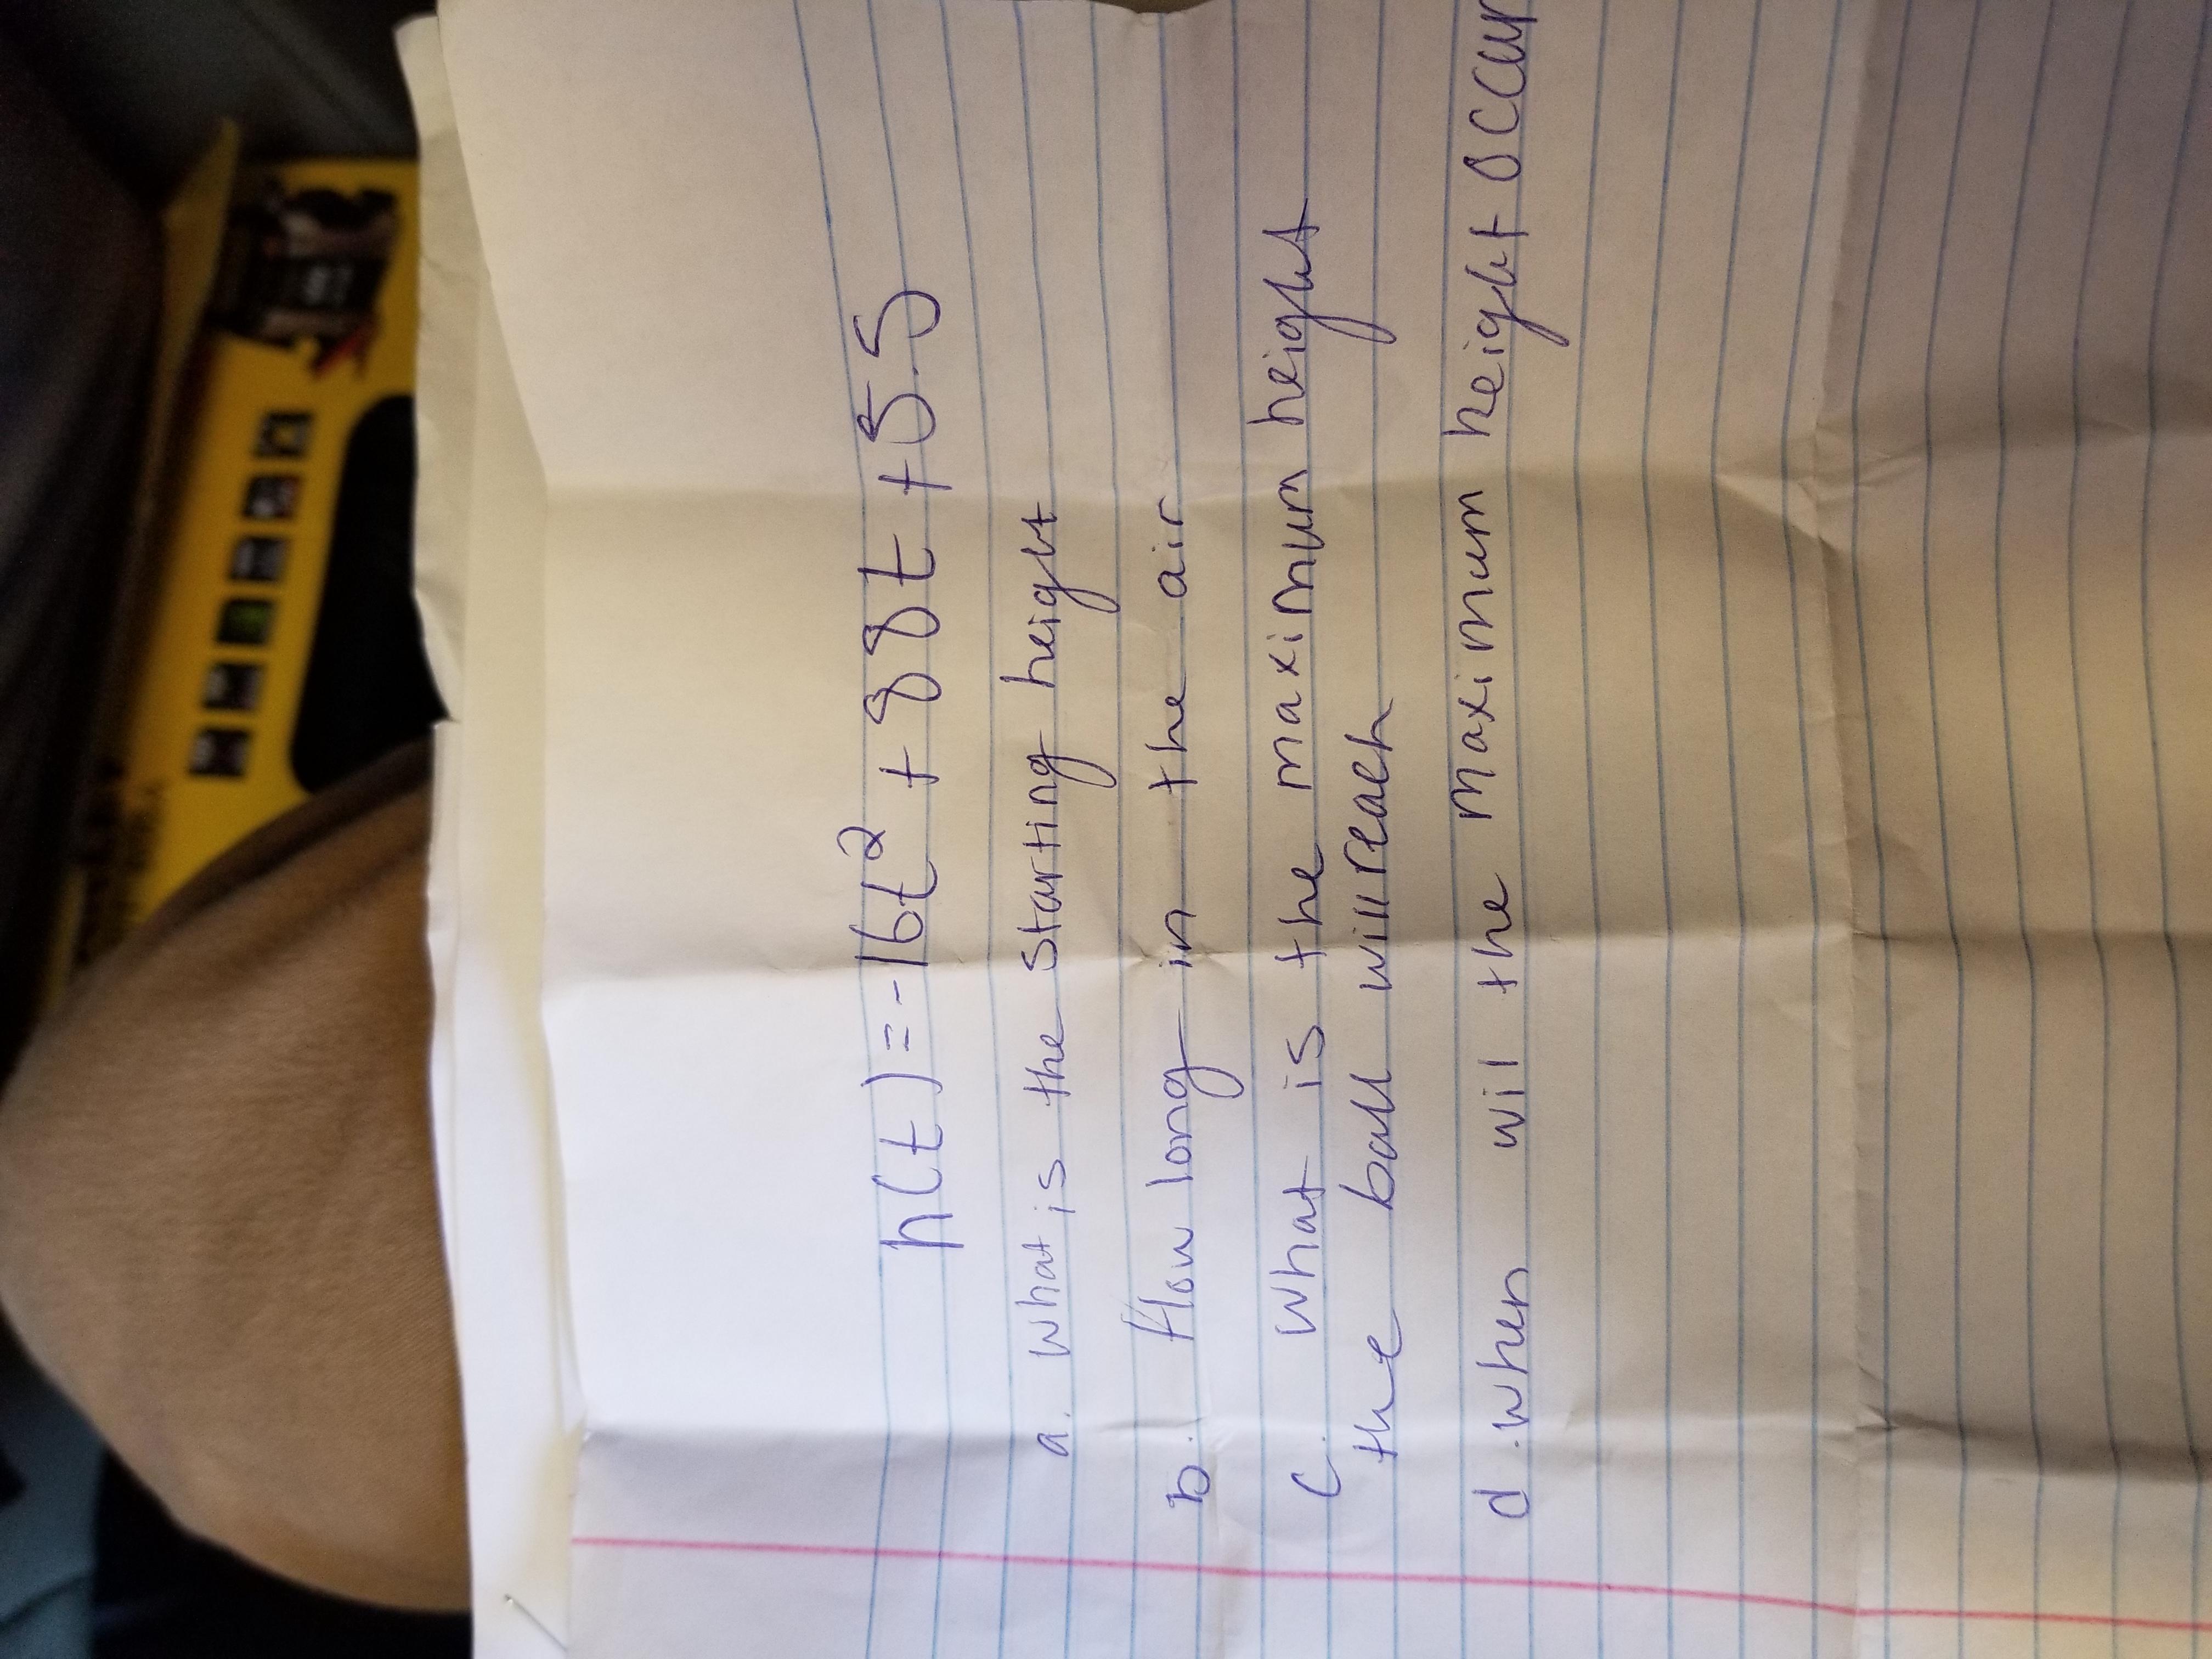 h(t) = -16t² + 88t + 5.5
a. what is the starting height
b. How long in the air
c. what is the maximum height
the ball will reach
d. when wil the maximum height occur